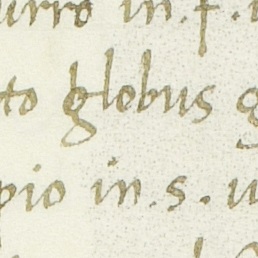 urro in.f.
to globus g
pio in.s. u